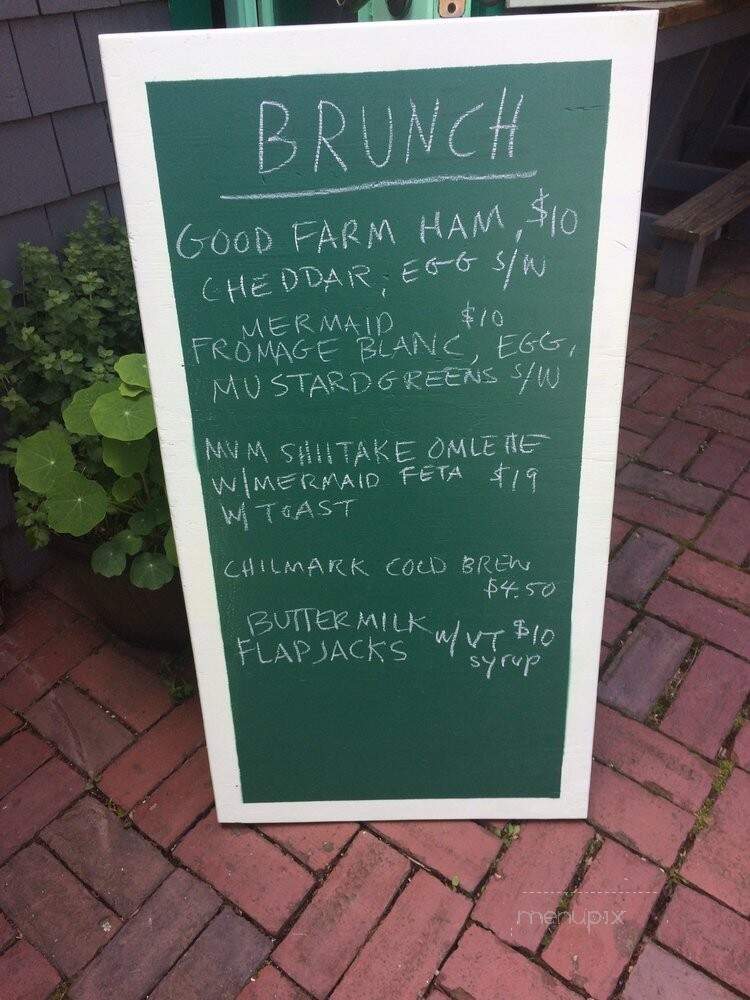 BRUNCH
GOOD FARM HAM, $10
CHEDDAR, EGG S/W
MERMAID $10
FROMAGE BLANC, EGG,
MUSTARD GREENS S/W
MVM SHIITAKE OMLETTE
W/MERMAID FETA $19
W/TOAST
CHILMARK COLD BREW
$4.50
BUTTERMILK
FLAPJACKS W/VT $10
syrup
menupix